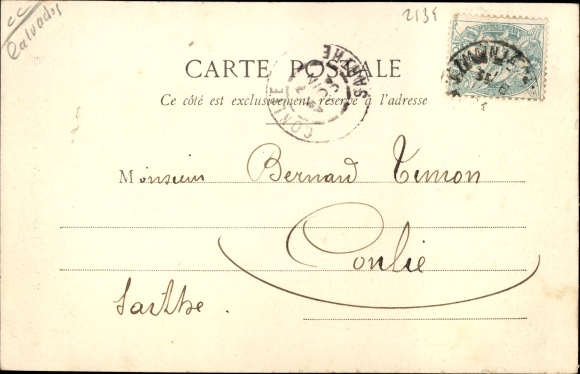 cc
Calvados
2134
CARTE POSTALE
Ce côté est exclusivement réservé à l'adresse
CONLIE
SARTHE
Monsieur Bernard Timon
Conlie
Sarthe.